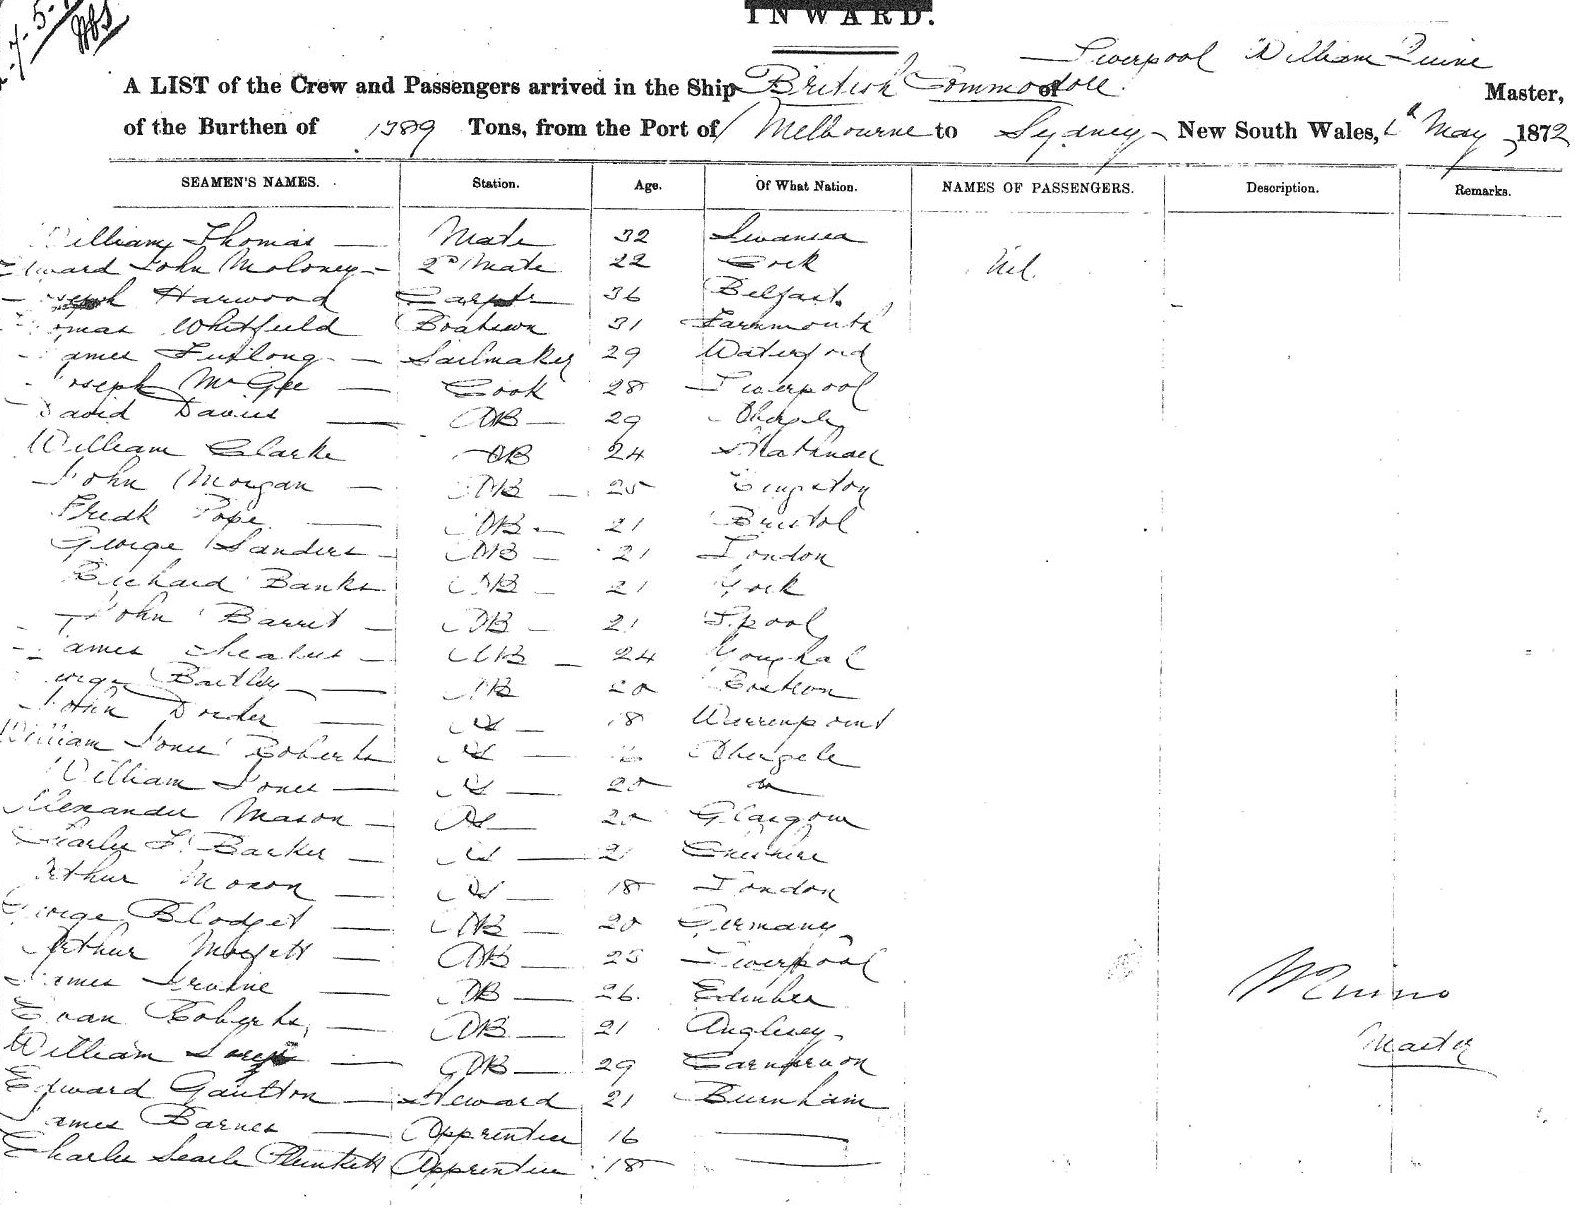 INWARD.
Liverpool William Quine
A LIST of the Crew and Passengers arrived in the Ship British Commodore of Master,
of the Burthen of 1389 Tons, from the Port of Melbourne to Sydney New South Wales, May 1872
SEAMEN'S NAMES. Station. Age. Of What Nation. NAMES OF PASSENGERS. Description. Remarks.
William Thomas Mate 32 Swansea
Edward John Moloney 2nd Mate 22 Cork Nil
Joseph Harwood Carptr 36 Belfast
Thomas Whitfield Boatswn 31
James Furlong Sailmaker 29 Waterford
Joseph McGee Cook 28 Liverpool
David Davies AB 29 Abergele
William Clarke AB 24
John Morgan AB 25 Kingston
Fredk Pope AB 21 Bristol
George Sanders AB 21 London
Richard Banks AB 21 York
John Barret AB 21 L.pool
James AB 24 Youghal
George Bartley AB 20
John AS 18 Warrenpoint
William Jones Roberts AS Abergele
William Jones AS 20 do
Alexander Mason AS 20 Glasgow
Charles F. Barker AS 21 Cheshire
Arthur Moxon AS 18 London
George Blodget AB 20 Germany
Arthur AB 25 Liverpool
James Irvine AB 26
Evan Roberts AB 21 Anglesey
William AB 29 Carnarvon
Edward Gautton Steward 21 Burnham
James Barnes Apprentice 16
Charles Searle Plunkett Apprentice 18
W Quine
Master